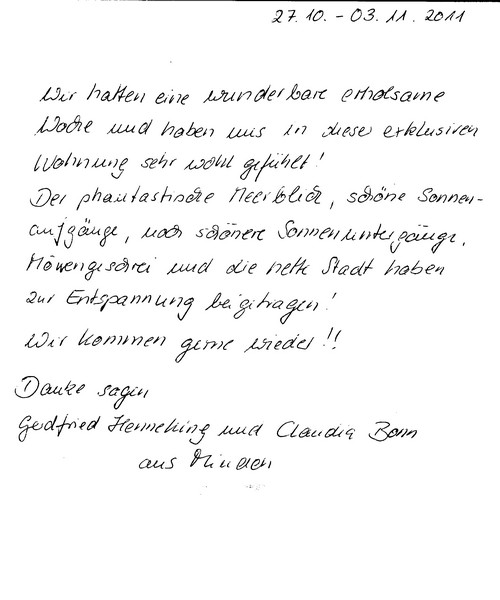 27.10. - 03.11.2011
Wir hatten eine wunderbare erholsame
Woche und haben uns in dieser exklusiven
Wohnung sehr wohl gefühlt!
Der phantastische Meerblick, schöne Sonnen-
aufgänge, noch schönere Sonnenuntergänge,
Möwengeschrei und die nette Stadt haben
zur Entspannung beigetragen!
Wir kommen gerne wieder!!
Danke sagen
Gerdfried Henneking und Claudia Bonn
aus Minden